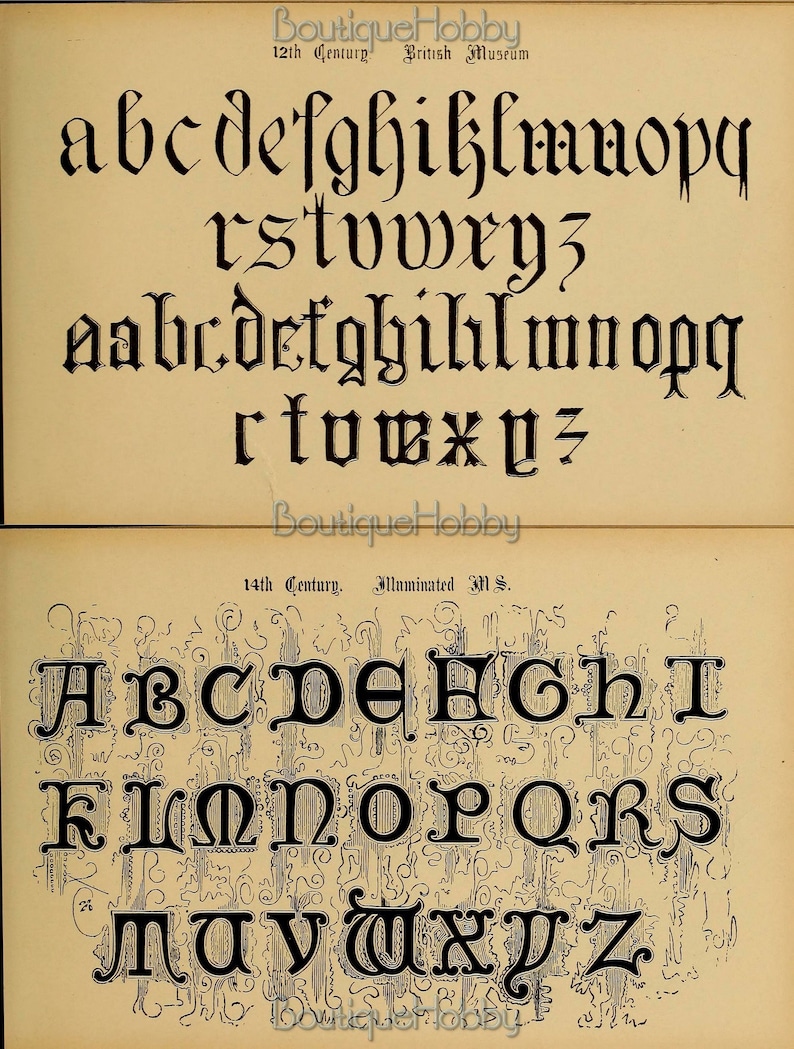 BoutiqueHobby
12th Century. British Museum
abcdefghiklmnopq
rstvwxyz
aabcdefghiklmnopq
rtvwxyz
BoutiqueHobby
14th Century. Illuminated MS.
ABCDEFGHI
KLMNOPQRS
TUVWXYZ
BoutiqueHobby